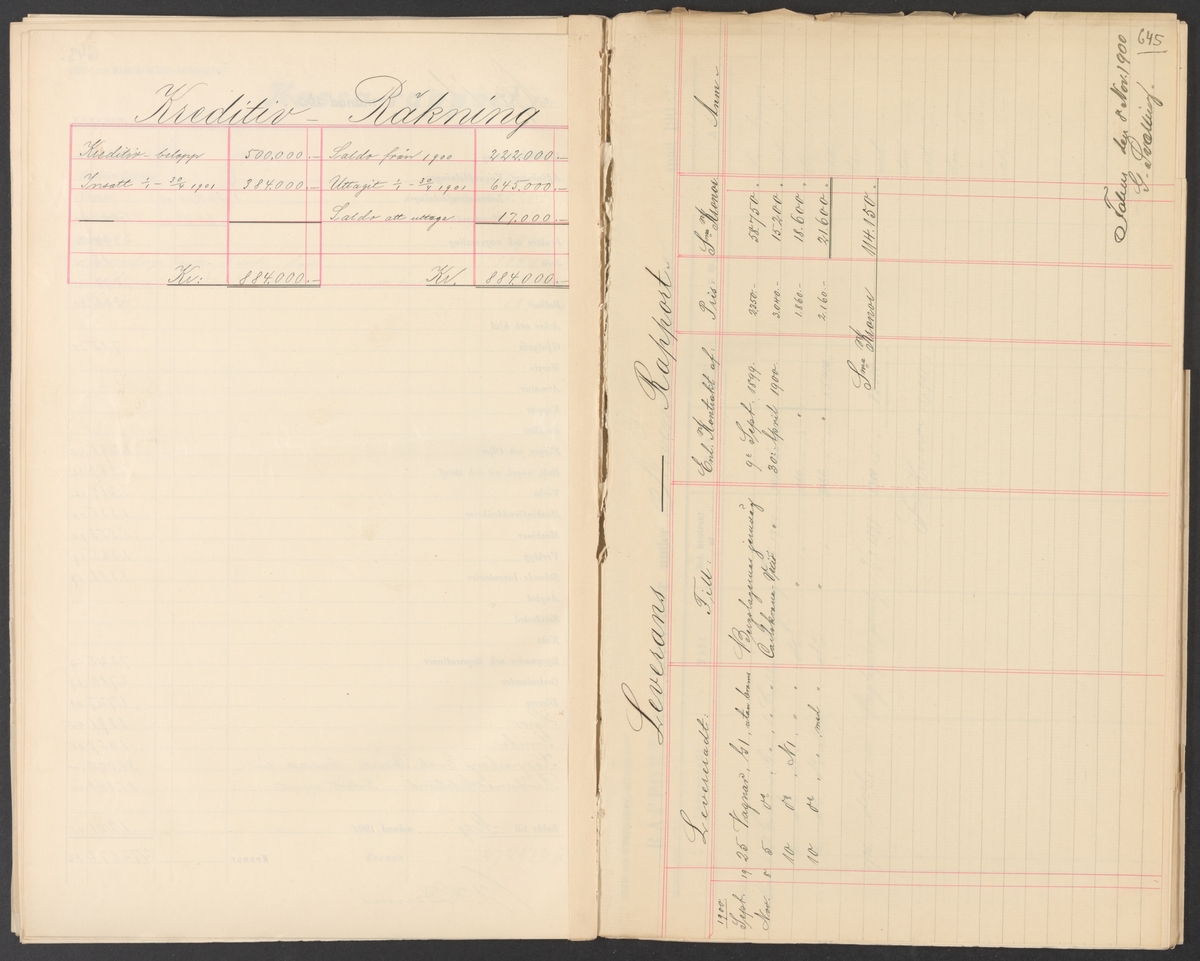 Kreditiv - Räkning
Kreditiv-belopp 500,000.- Saldo från 1900 222,000.-
Insatt 1/1 - 30/4 1901 384,000.- Uttagit 1/1 - 30/4 1901 645,000.-
Saldo att uttaga 17,000.-
Kr: 884,000.- Kr. 884,000.-
645
Falun den 8 Nov. 1900
Leverans — Rapport.
Levereradt: Till: Enl. Kontrakt af: Pris Sma Kronor Anm.
1900
Sept. 19 25 Vagnar, utan broms Bergslagernas jernväg 9r Sept. 1899 2350.- 58.750.
Nov. 8 5 Dr Carlskrona-Vexiö 30r April 1900 3.040.- 15.200.
10 Dr N1 1.860.- 18.600.
10 Dr med 2.160.- 21.600.
Sma Kronor 114.150.